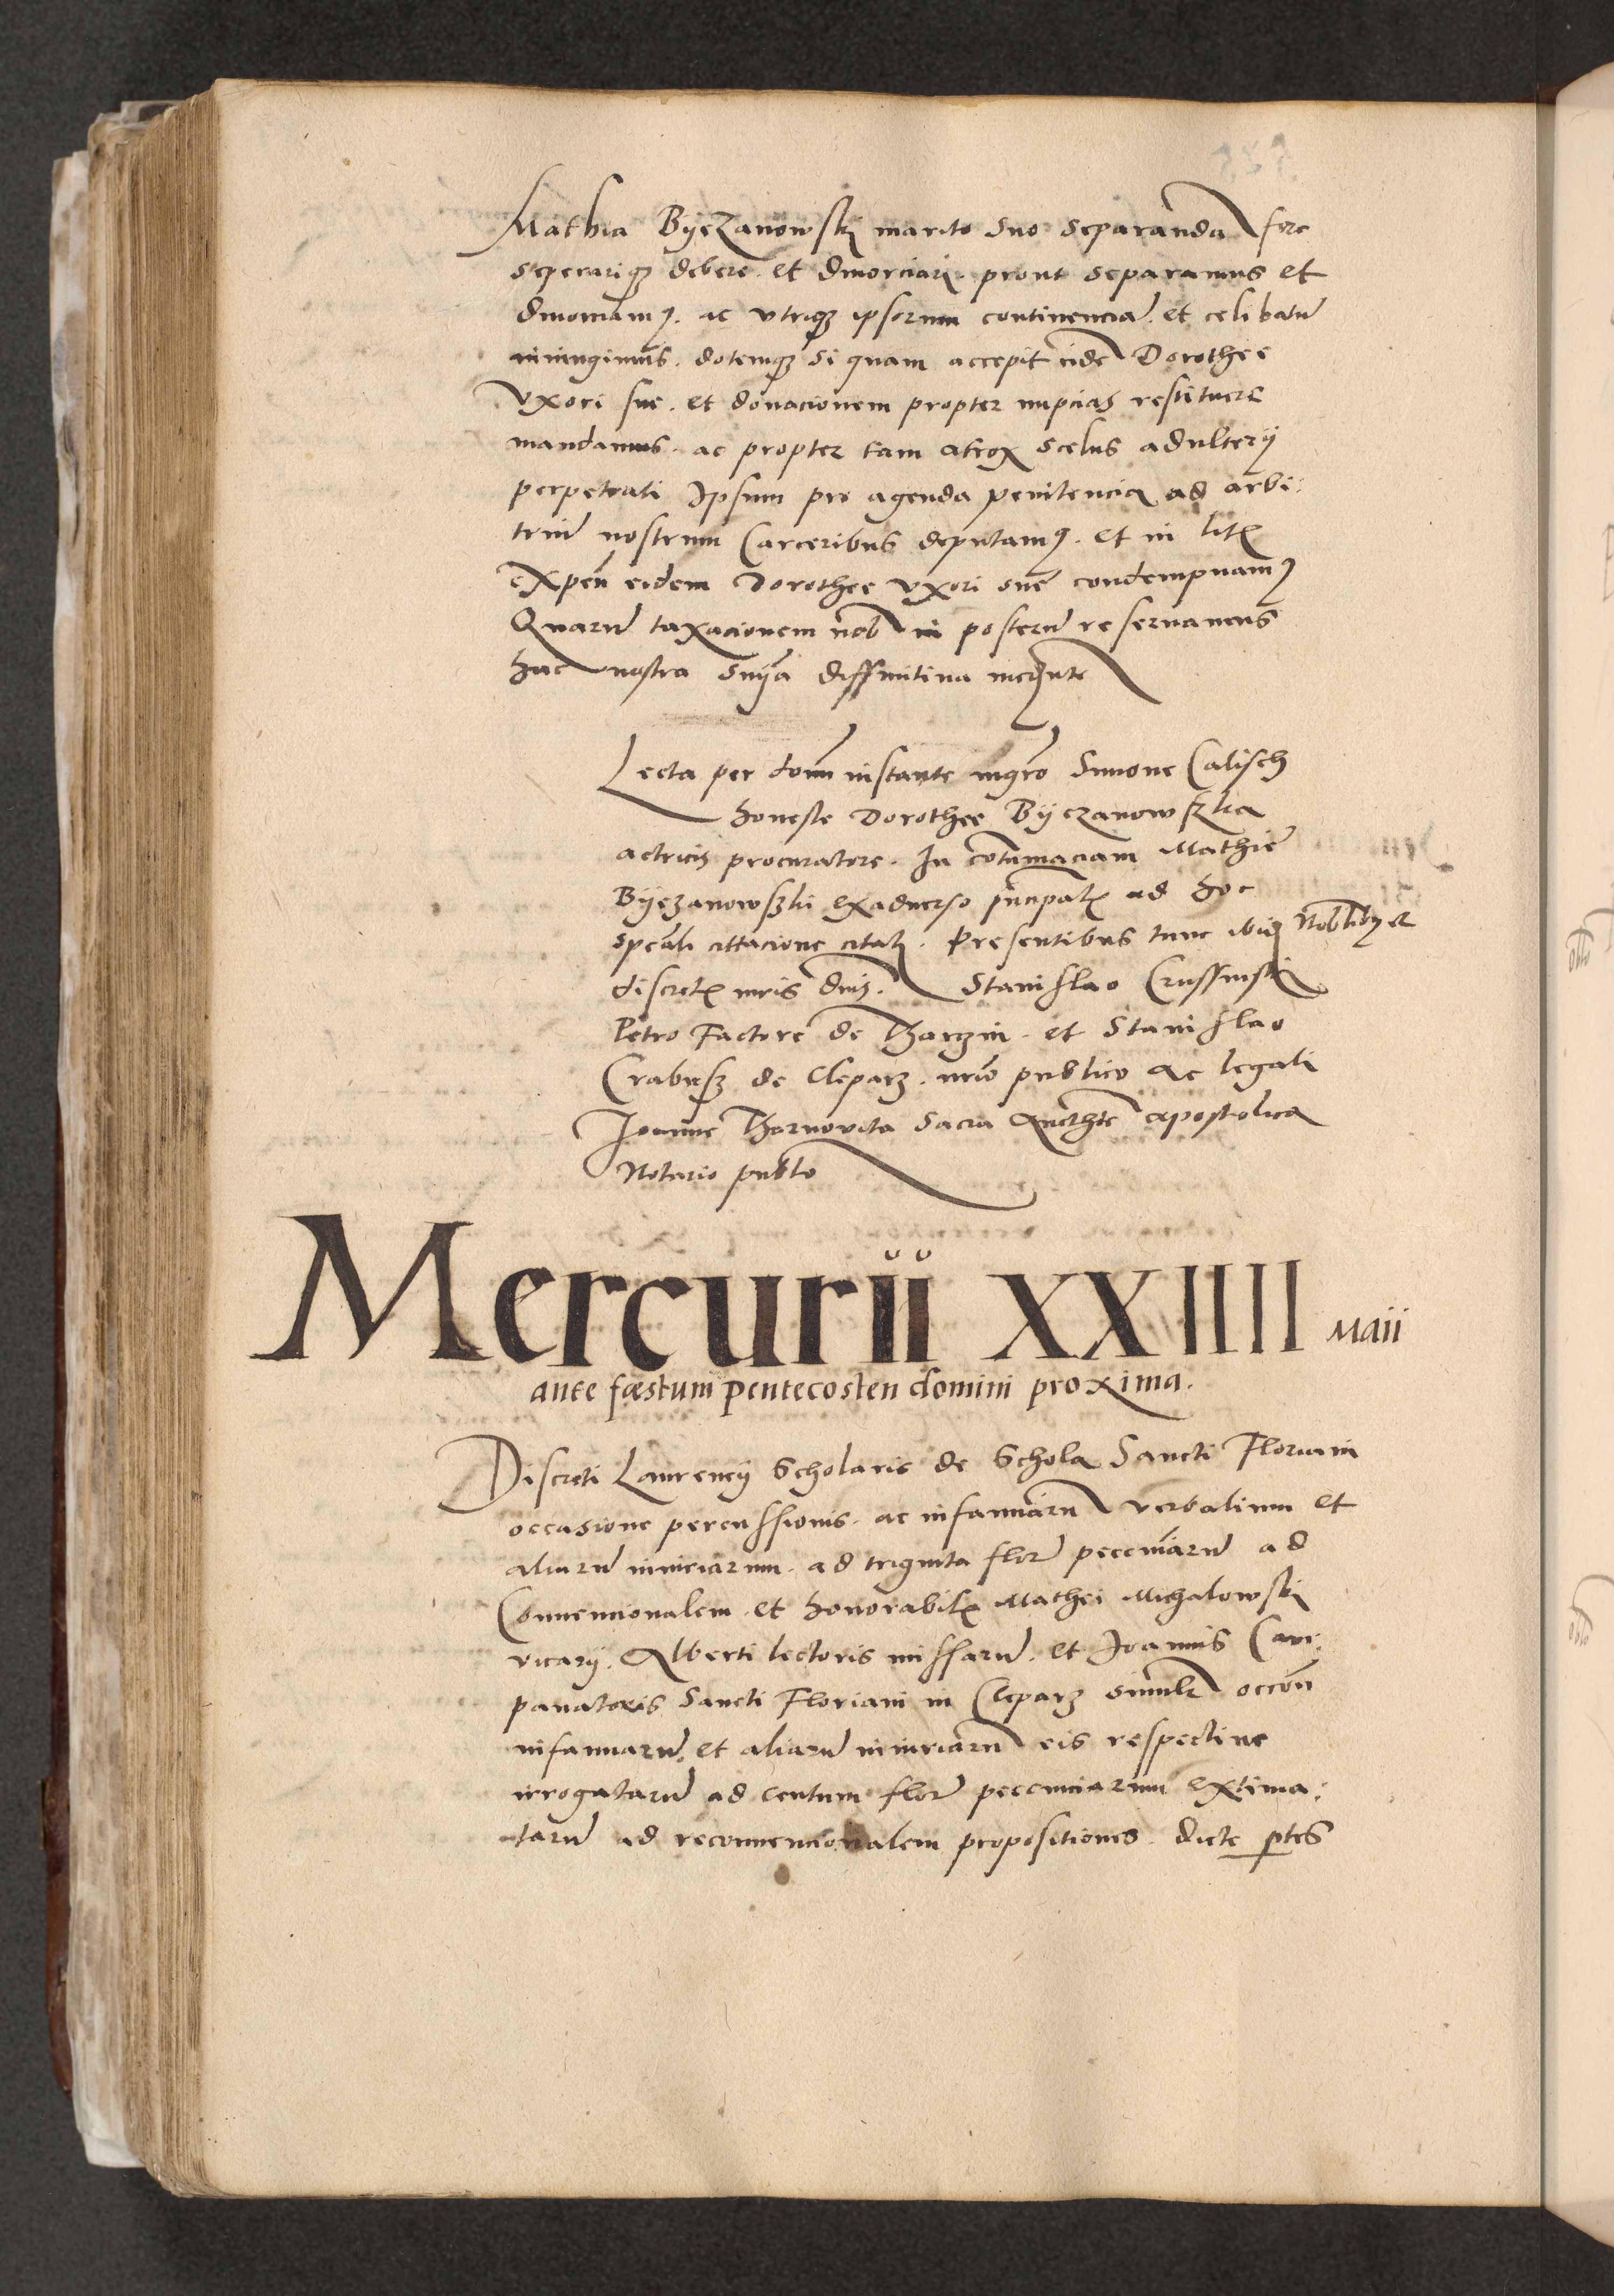 Mathia Byezanowskj marito suo separanda fore
seperariqz debere. et divorciari. prout separamus et
divorciamus. ac utriqz ipsorum continenciam. et celibatum
iniungimus. dotemqz si quam accepit eidem Dorothee
uxori sue. et donacionem propter nupcias restituere
mandamus. ac propter tam atrox scelus adulterij
perpetrati Ipsum pro agenda penitencia ad arbi:
trium nostrum Carceribus deputamus. et in litis
expen eidem Dorothee uxori sue condempnamus
Quarum taxacionem nob in posterum reservamus
hac nostra snia diffinitiva mediante
Lecta per dominum instante mgro Simone Calisch
honeste Dorothee Byezanowszka
actricis procuratore. In contumaciam Mathie
Byezanowszki exadverso principalis ad hoc
speciali cittacione citati. Presentibus tunc ibidem Nobilibus et
discretis viris dnis. Stanislao Crussinski
Petro Factore de Tharzin. et Stanislao
Crabusz de Cleparz. nrio publico ac legali
Joanne Tharnovita Sacra Aucthte apostolica
Notario publico
Mercurii XXIIII Maii
ante fæstum pentecosten domini proxima.
Discreti Laurencij Scholaris de Schola Sancti Floriani
occasione percussionis. ac infamiarum verbalium et
aliarum iniuriarum. ad triginta flor pecuniarum ad
Convencionalem. et honorabilis Mathei Michalowski
vicarij. Alberti lectoris missarum. et Joannis Cam:
panatoris Sancti Floriani in Cleparz similiter occon
infamiarum. et aliarum iniuriarum eis respective
irrogatarum ad centum flor pecuniarum extima:
tarum ad reconvencionalem propositiones. dicte ptes